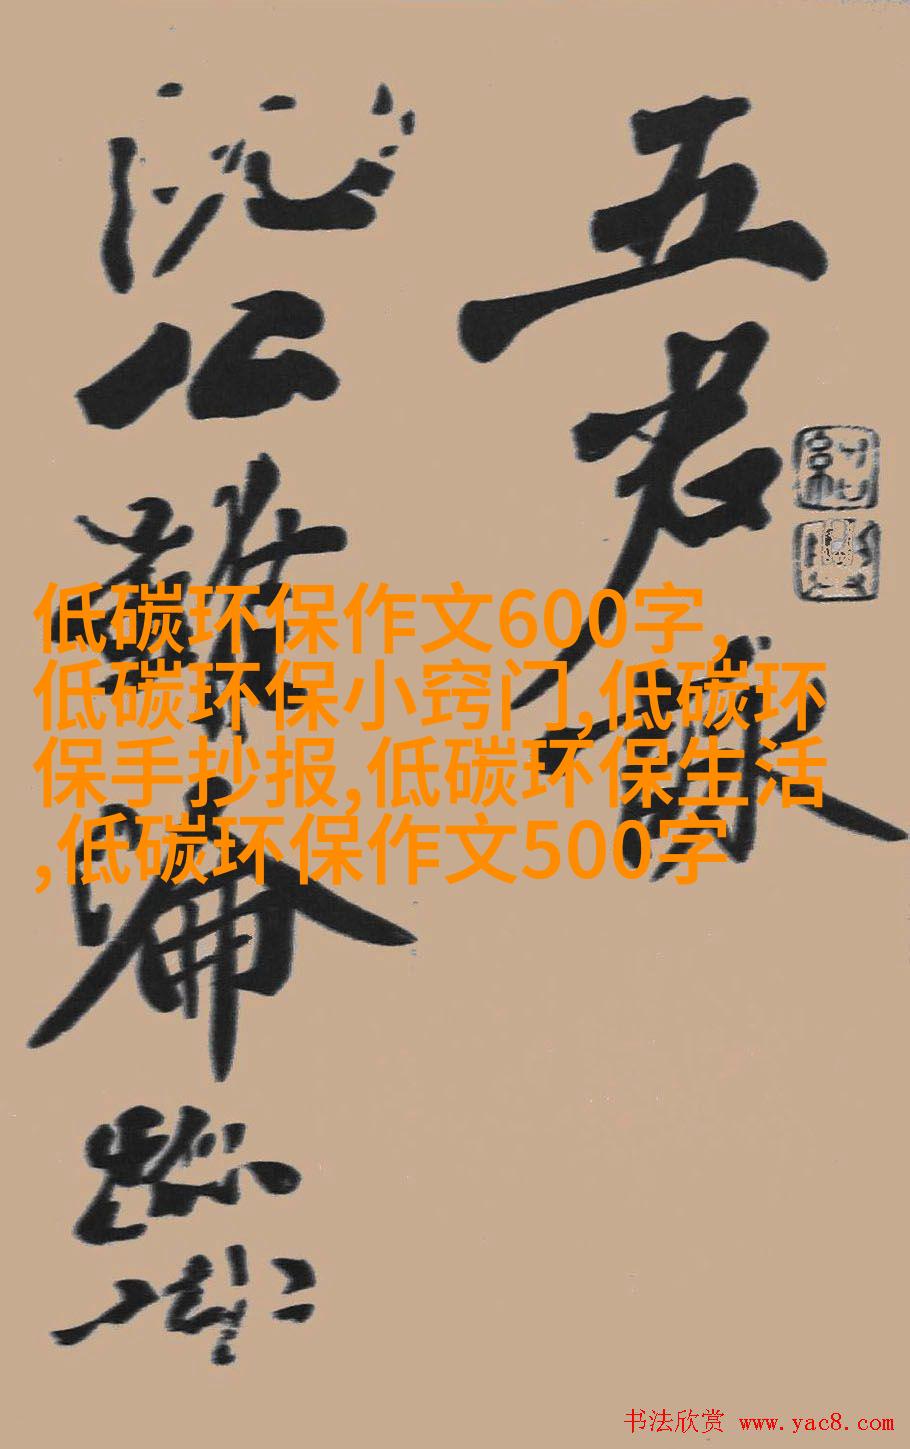 五君咏
阮公
虽
沦
迹
低碳环保作文600字,
低碳环保小窍门,低碳环
保手抄报,低碳环保生活
,低碳环保作文500字
书法欣赏 www.yac8.com